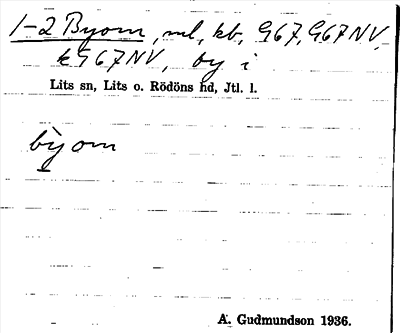 1-2 Byom, ml, kb, G67, G67NV,
kG67NV, by i
Lits sn, Lits o. Rödöns hd, Jtl. l.
byom
A. Gudmundson 1936.